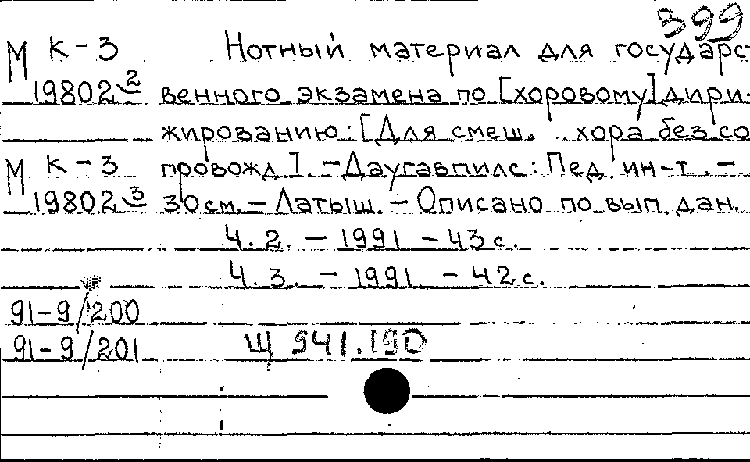 399
М К-3 Нотный материал для государс
19802² венного экзамена по [хоровому] дири-
жированию: [Для смеш. хора без со
М К-3 провожд]. - Даугавпилс: Пед ин-т. -
19802³ 30 см. - Латыш. - Описано по вып. дан.
Ч. 2. - 1991 - 43 с.
Ч. 3. - 1991 - 42 с.
91-9/200
91-9/201 Щ 941.190